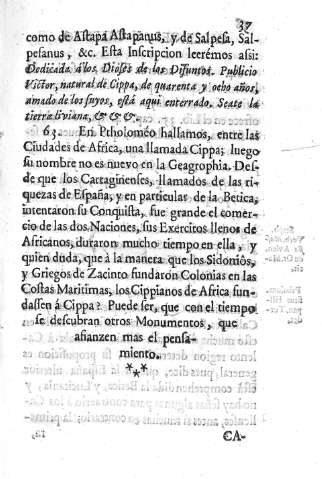 37
como de Astapa Astapanus, y de Salpesa, Sal-
pesanus, &c. Esta Inscripcion leerémos assi:
Dedicada à los Dioses de los Difuntos. Publicio
Victor, natural de Cippa, de quarenta y ocho años,
amado de los suyos, està aqui enterrado. Seate la
tierra liviana, &c &c &c.
63. En Ptholoméo hallamos, entre las
Ciudades de Africa, una llamada Cippa; luego
su nombre no es nuevo en la Geagrophia. Des-
de que los Cartaginenses, llamados de las ri-
quezas de España, y en particular de la Betica,
intentaron su Conquista, fue grande el comer-
cio de las dos Naciones, sus Exercitos llenos de
Africanos, duraron mucho tiempo en ella, y
quien duda, que à la manera que los Sidoniòs,
y Griegos de Zacinto fundaron Colonias en las
Costas Maritimas, los Cippianos de Africa fun-
dassen à Cippa? Puede ser, que con el tiempo
se descubran otros Monumentos, que
afianzen mas el pensa-
miento.
***
CA-